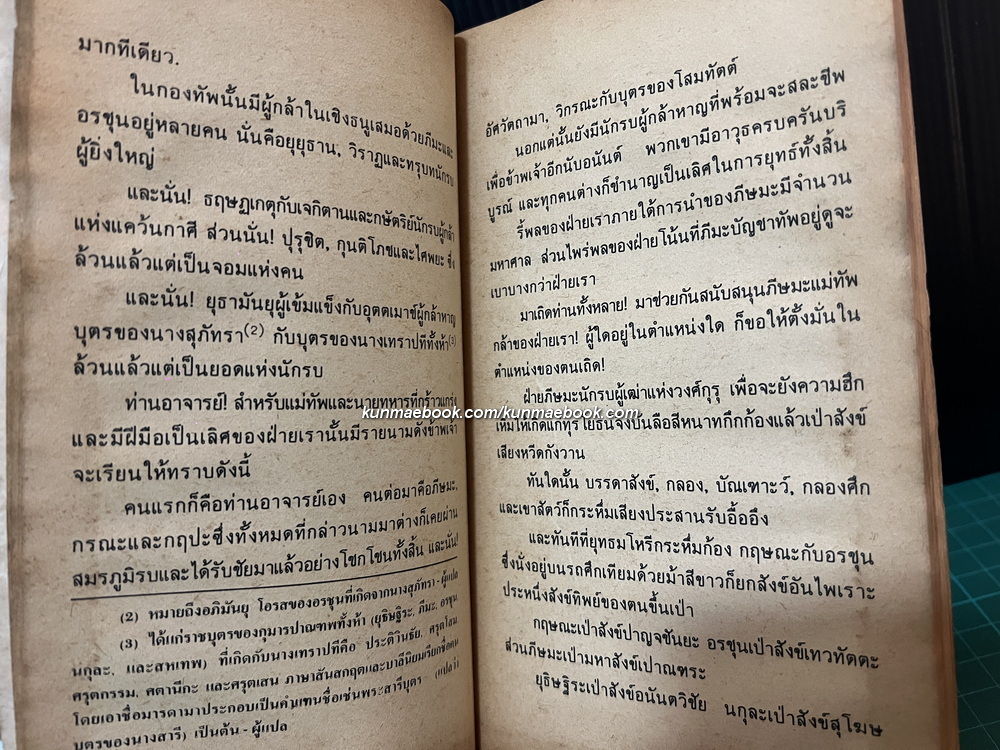 มากทีเดียว.
ในกองทัพนั้นมีผู้กล้าในเชิงธนูเสมอด้วยภีมะและ
อรชุนอยู่หลายคน นั่นคือยุยุธาน, วิราฏและทรุบทนักรบ
ผู้ยิ่งใหญ่
และนั่น! ธฤษฏเกตุกับเจกิตานและกษัตริย์นักรบผู้กล้า
แห่งแคว้นกาศี ส่วนนั่น! ปุรุชิต, กุนติโภชและไศพยะ ซึ่ง
ล้วนแล้วแต่เป็นจอมแห่งคน
และนั่น! ยุธามันยุผู้เข้มแข็งกับอุตตเมาช์ผู้กล้าหาญ
บุตรของนางสุภัทรา(2) กับบุตรของนางเทราปทีทั้งห้า(3)
ล้วนแล้วแต่เป็นยอดแห่งนักรบ
ท่านอาจารย์! สำหรับแม่ทัพและนายทหารที่กร้าวแกร่ง
และมีฝีมือเป็นเลิศของฝ่ายเรานั้นมีรายนามดังข้าพเจ้า
จะเรียนให้ทราบดังนี้
คนแรกก็คือท่านอาจารย์เอง คนต่อมาคือภีษมะ,
กรณะและกฤปะซึ่งทั้งหมดที่กล่าวนามมาต่างก็เคยผ่าน
สมรภูมิรบและได้รับชัยมาแล้วอย่างโชกโชนทั้งสิ้น และนั่น!
(2) หมายถึงอภิมันยุ โอรสของอรชุนที่เกิดจากนางสุภัทรา - ผู้แปล
(3) ได้แก่ราชบุตรของกุมารปาณฑพทั้งห้า (ยุธิษฐิระ, ภีมะ, อรชุน
นกุละ, และสหเทพ) ที่เกิดกับนางเทราปทีคือ ประติวินธัย, ศรุตโสม
ศรุตกรรม, ศตานีกะ และศรุตเสน ภาษาสันสกฤตและบาลีนิยมเรียกชื่อคน
โดยเอาชื่อมารดามาประกอบเป็นคำแทนชื่อเช่นพระสารีบุตร (แปลว่า
บุตรของนางสารี) เป็นต้น - ผู้แปล
อัศวัตถามา, วิกรณะกับบุตรของโสมทัตต์
นอกแต่นั้นยังมีนักรบผู้กล้าหาญที่พร้อมจะสละชีพ
เพื่อข้าพเจ้าอีกนับอนันต์ พวกเขามีอาวุธครบครันบริ
บูรณ์ และทุกคนต่างก็ชำนาญเป็นเลิศในการยุทธ์ทั้งสิ้น
รี้พลของฝ่ายเราภายใต้การนำของภีษมะมีจำนวน
มหาศาล ส่วนไพร่พลของฝ่ายโน้นที่ภีมะบัญชาทัพอยู่ดูจะ
เบาบางกว่าฝ่ายเรา
มาเถิดท่านทั้งหลาย! มาช่วยกันสนับสนุนภีษมะแม่ทัพ
กล้าของฝ่ายเรา! ผู้ใดอยู่ในตำแหน่งใด ก็ขอให้ตั้งมั่นใน
ตำแหน่งของตนเถิด!
ฝ่ายภีษมะนักรบผู้เฒ่าแห่งวงศ์กุรุ เพื่อจะยังความฮึก
kunmaebook.com/kunmaebook.com
เหิมให้เกิดแก่ทุรโยธนจึงบันลือสีหนาทกึกก้องแล้วเป่าสังข์
เสียงหวีดกังวาน
ทันใดนั้น บรรดาสังข์, กลอง, บัณเฑาะว์, กลองศึก
และเขาสัตว์ก็กระหึ่มเสียงประสานรับอื้ออึง
และทันทีที่ยุทธมโหรีกระหึ่มก้อง กฤษณะกับอรชุน
ซึ่งนั่งอยู่บนรถศึกเทียมด้วยม้าสีขาวก็ยกสังข์อันไพเราะ
ประหนึ่งสังข์ทิพย์ของตนขึ้นเป่า
กฤษณะเป่าสังข์ปาญจชันยะ อรชุนเป่าสังข์เทวทัตตะ
ส่วนภีษมะเป่ามหาสังข์เปาณฑระ
ยุธิษฐิระเป่าสังข์อนันตวิชัย นกุละเป่าสังข์สุโฆษ